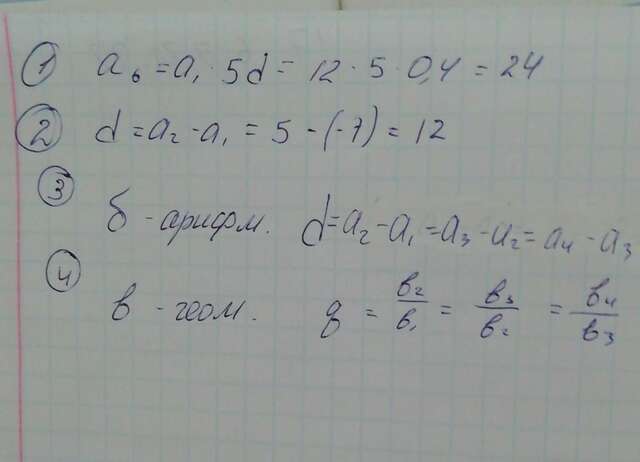 1 a₆ = a₁ · 5d = 12 · 5 · 0,4 = 24
2 d = a₂ - a₁ = 5 - (-7) = 12
3
б - арифм. d = a₂ - a₁ = a₃ - a₂ = a₄ - a₃
4
в - геом. q = в₂/в₁ = в₃/в₂ = в₄/в₃